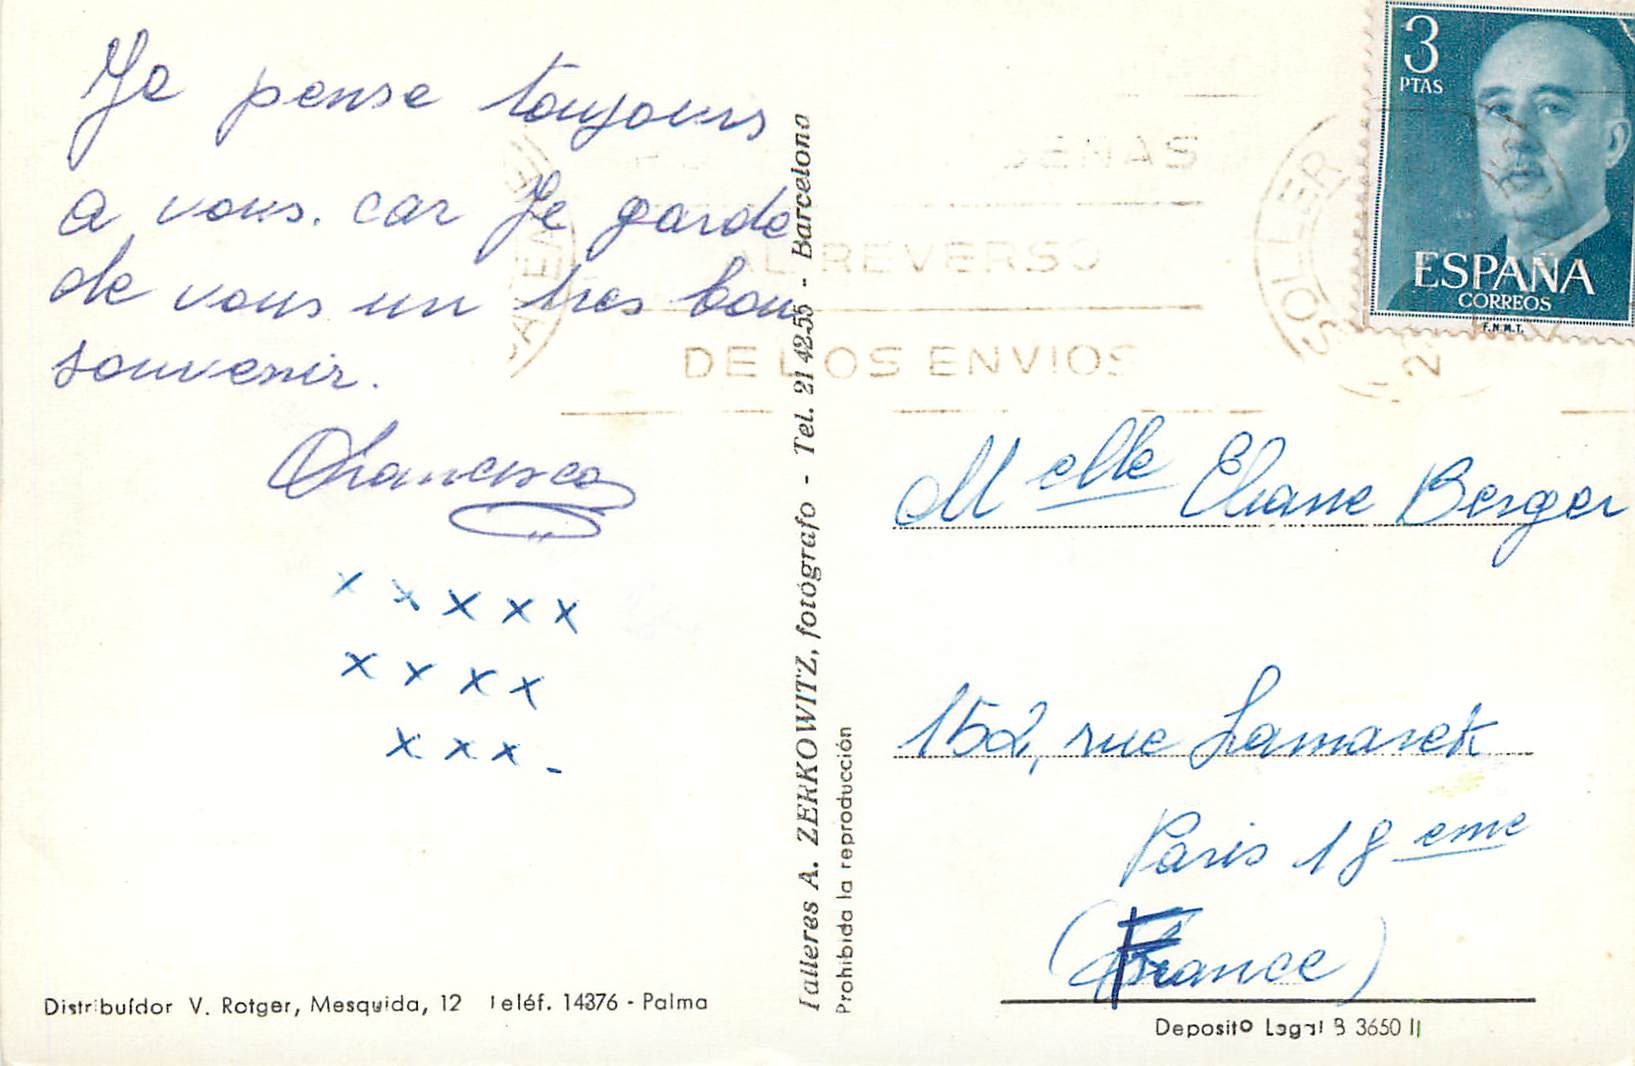 Je pense toujours
a vous. car Je garde
de vous un tres bon
souvenir.
Francisco
x x x x x
x x x x
x x x -
Distribuidor V. Rotger, Mesquida, 12 Teléf. 14376 - Palma
Talleres A. ZERKOWITZ, fotógrafo - Tel. 21 42 55 - Barcelona
Prohibida la reproducción
3
PTAS
ESPAÑA
CORREOS
F.N.M.T.
SOLLER
SEÑAS
AL REVERSO
DE LOS ENVIOS
Melle Eliane Berger
152, rue Lamarck
Paris 18 eme
(France)
Deposito Legal B 3650 II